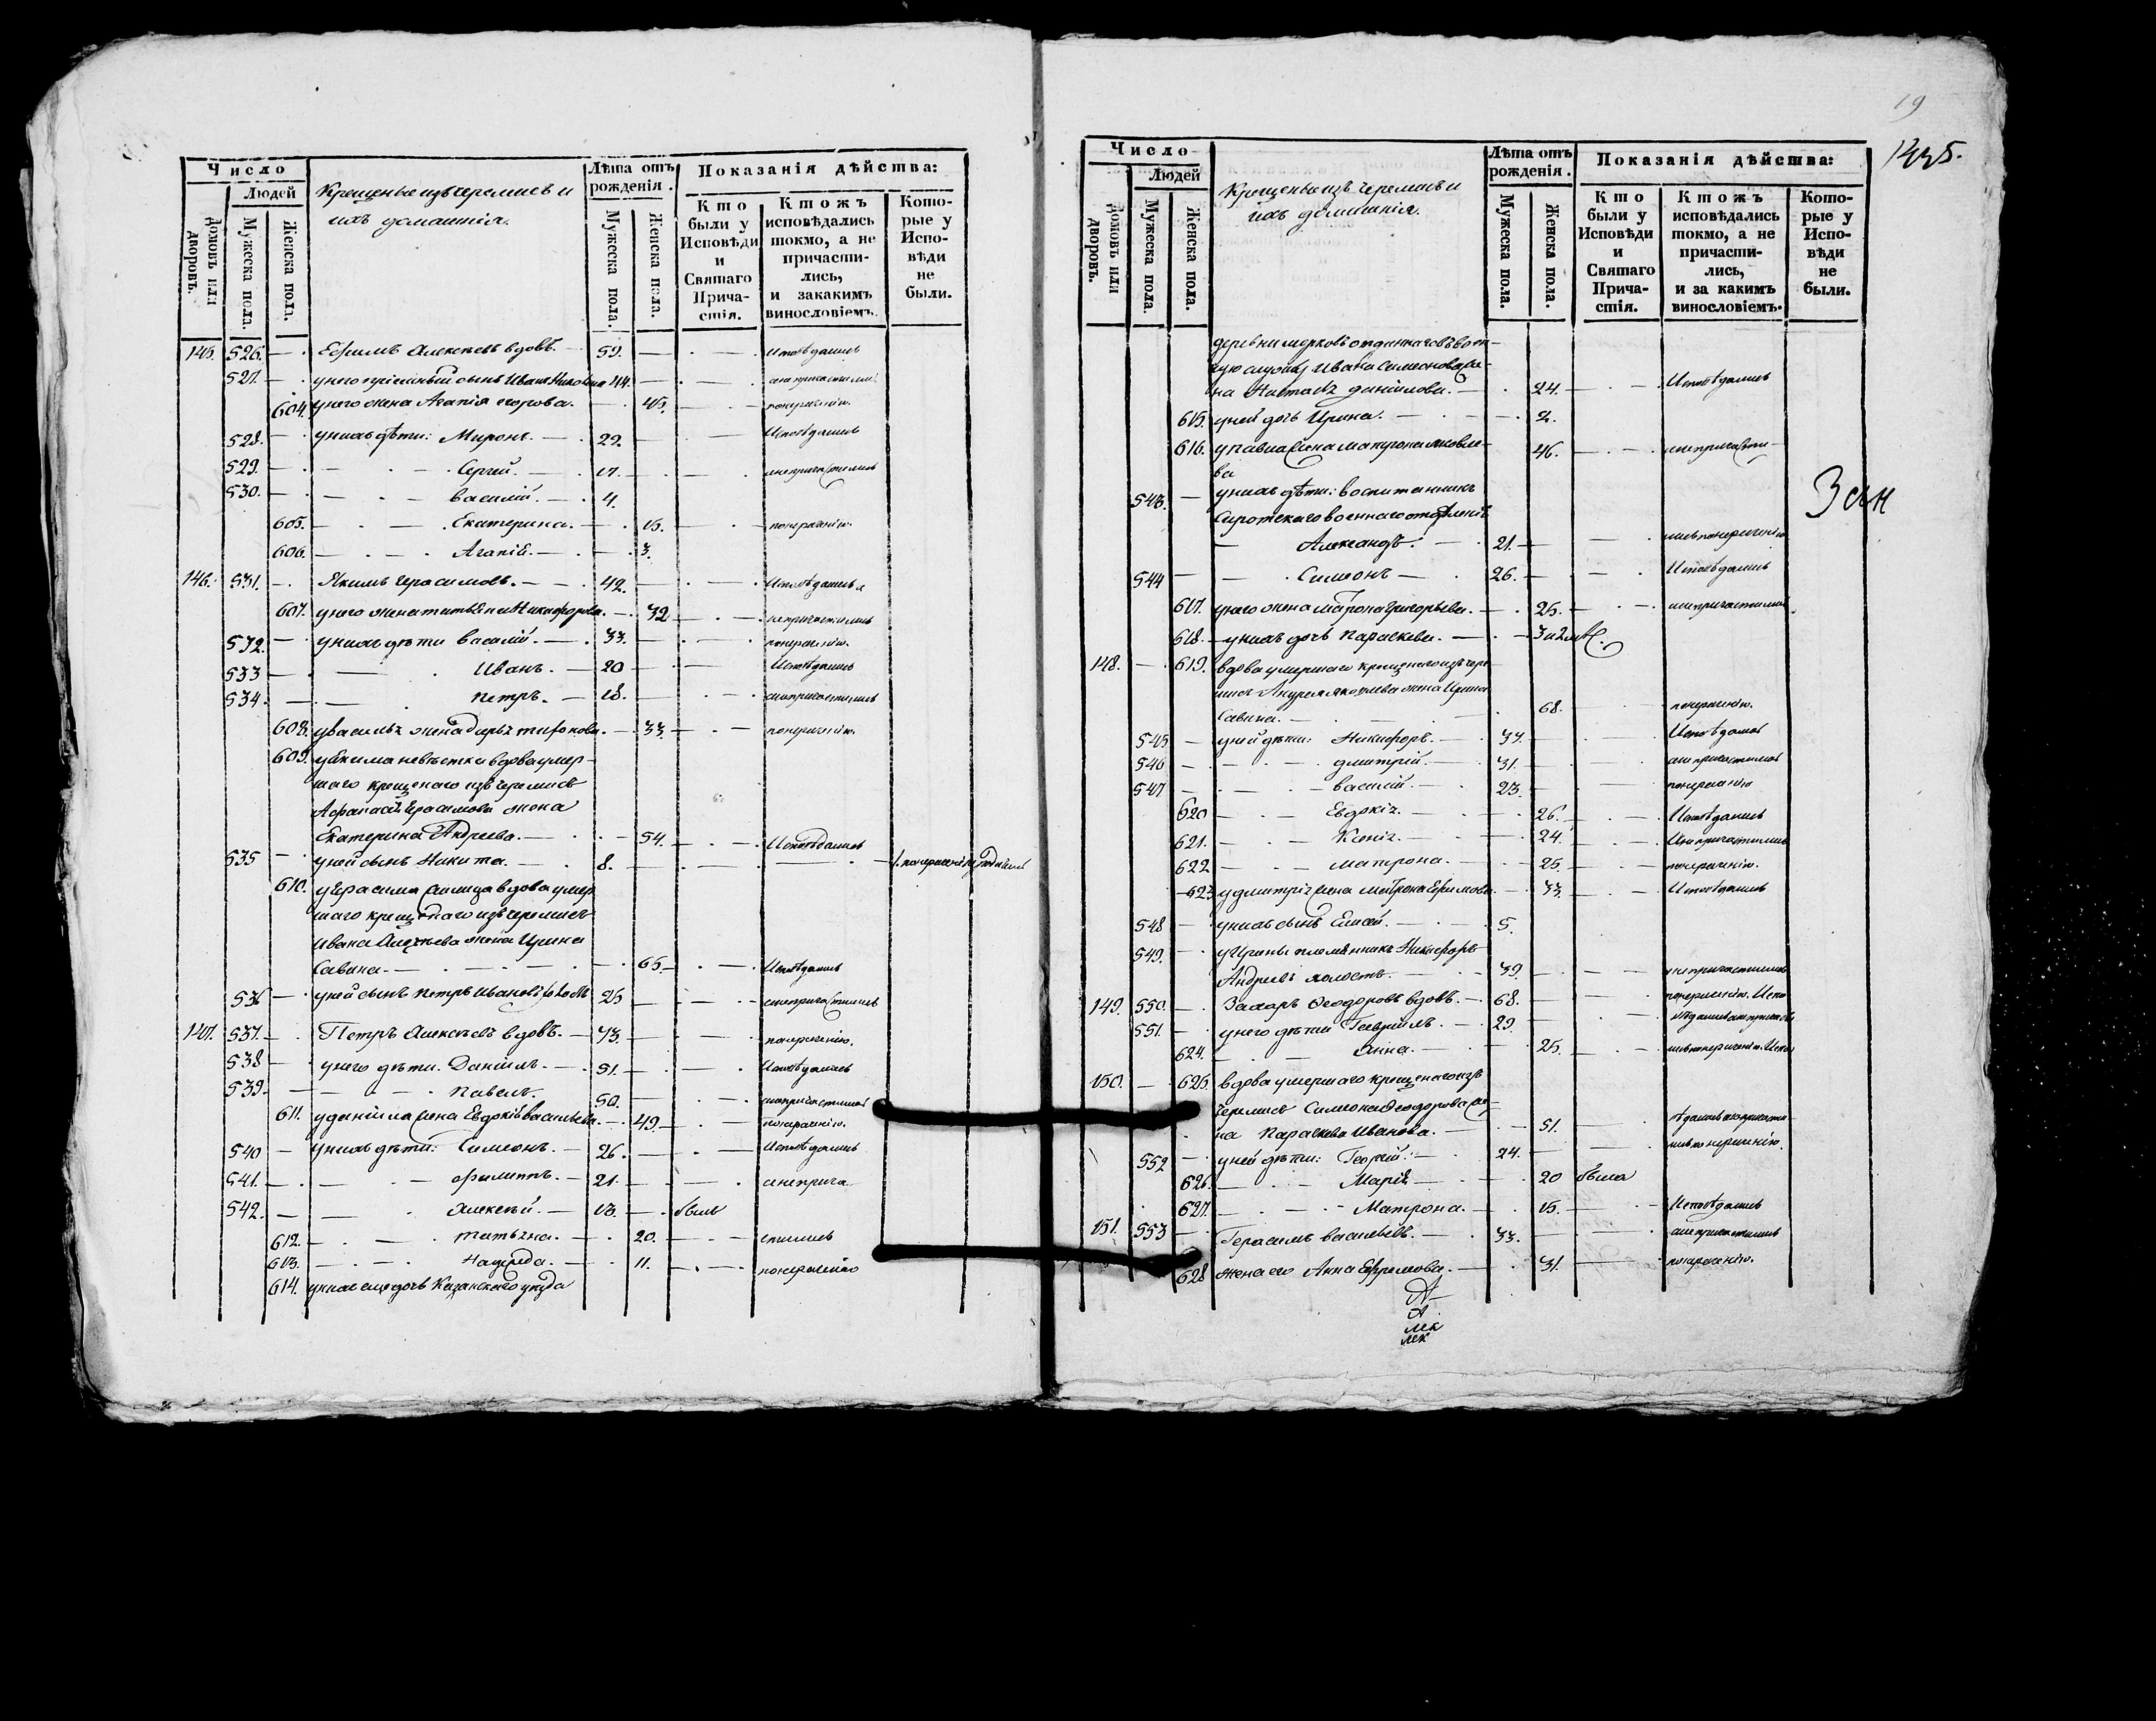 Число
Людей
Домовъ или дворовъ.
Мужеска пола.
Женска пола.
Крещеные изъ черемисъ и
ихъ домашнія.
Лѣта отъ рождения.
Мужеска пола.
Женска пола.
Показанія дѣйства:
Кто были у Исповѣди и Святаго Прича-стія.
Ктожъ исповѣдались токмо, а не причасти-лись, и закакимъ винословіемъ.
Кото-рые у Испо-вѣди не были.
145. 526. — Ефимъ Алексѣевъ вдовъ. — 59. — исповѣдались
527. — у него пріемный сынъ Иванъ 44. — анепричастили
604. у него жена Агапія Егорова. — 45. — понерачѣнію.
528. — у нихъ дѣти: Миронъ. — 22. — Исповѣдались
529. — Сергей. — 17. — инепричастились
530. — василій. — 4.
605. — Екатерина. — 15. — понерачѣнію.
606. — Агапія. — 3.
146. 531. — Якимъ Герасимовъ. — 42. — Исповѣдались
607. у него жена татьяна Никифорова. — 32 — непричастились
532. — у нихъ дѣти василій. — 33. — понерачѣнію.
533 — Иванъ. — 20 — Исповѣдались
534. — Петръ. — 18. — анепричастились
608. у василья жена дарья — 33. — понерачѣнію.
609. у Якима невѣстка вдова умер-
шаго крещенаго изъ черемисъ
Афанасія Герасимова жена
Екатерина Андреева. — 54. — Исповѣдались
535 — у ней сынъ Никита. — 8.
610. у Герасима вдова умер
шаго крещенаго изъ черемисъ
Ивана Алексѣева жена Ирина
Савина. — 65. — Исповѣдались
536 — у ней сынъ Петръ Ивановъ 25 — анепричастились
147. 537. — Петръ Алексѣевъ вдовъ. — 73. — понерачѣнію.
538 — у него дѣти. Даніилъ. — 51. — Исповѣдались
539. — Павелъ. 50. — анепричастились
611. у даніила жена Евдокія васильева. — 49. — понерачѣнію.
540 — у нихъ дѣти: Симеонъ. — 26. — Исповѣдались
541. — филиппъ. — 21. — анеприча
542. — Алексѣй. — 13. — былъ
612. — татьяна. — 20. — стились
613. — Надежда. — 11. — понерачѣнію
614. у нихъ еще дочь Казанскаго уѣзда
19
1435.
Число
Людей
Домовъ или дворовъ.
Мужеска пола.
Женска пола.
Крещеные изъ черемисъ и
ихъ домашнія.
Лѣта отъ рождения.
Мужеска пола.
Женска пола.
Показанія дѣйства:
Кто были у Исповѣди и Святаго Прича-стія.
Ктожъ исповѣдались токмо, а не причасти-лись, и за какимъ винословіемъ.
Кото-рые у Испо-вѣди не были.
деревни
службу Ивана Симеонова же-
на Наталья данилова. — 24. — Исповѣдались
615. у ней дочь Ирина. — 2.
616. у павла жена матрона яковле-
ва 46. — инепричасти
543. — у нихъ дѣти: воспитанникъ
Сиротскаго военнаго отдѣленія
— Александръ. — 21. — лись понерачѣнію
544 — Симеонъ — 26. — Исповѣдались
617. у него жена Матрона Григорьева. — 25. — инепричастились
618. — у нихъ дочь Параскева. — 3
148. — 619. вдова умершаго крещенаго изъ чере
мисъ Андрея Яковлева жена Ирина
Савина. — 68. — понерачѣнію.
545 — у ней дѣти: Никифоръ. — 37. — Исповѣдались
546 — дмитрій. — 31. — анепричастились
547 — василій. — 23. — понерачѣнію
620 — Евдокія. — 26. — Исповѣдались
621. — Ксенія. — 24. — Инепричастились
622 — матрона. — 25. — понерачѣнію.
623 у дмитрія жена Матрона Ефимова. — 33. — Исповѣдались
548 — у нихъ сынъ Елисей. — 5.
549. — у Ирины племянникъ Никифоръ
Андреевъ холостъ. — 39. — непричастились
149. 550. — Захаръ Ѳеодоровъ вдовъ. — 68. — понерачѣнію. Испо
551. — у него дѣти Гавріилъ. — 29. — вѣдались анепричасти
624. — Анна. — 25. — лись понерачѣнію. Испо
150. — 625. вдова умершаго крещенаго изъ
черемисъ Симеона Ѳеодорова же-
на Параскева Иванова. — 51. — вѣдались анепричасти
552 — у ней дѣти: Георгій. — 24. — лись понерачѣнію.
626. — Марія — 20 была
627. — Матрона. — 15. — Исповѣдались
151. 553 — Герасимъ васильевъ. — 33. — анепричастились
628 жена его Анна Ефремова. — 31. — понерачѣнію.